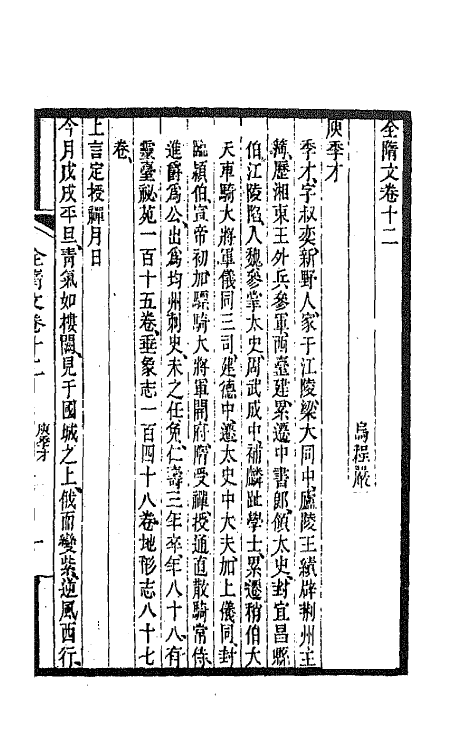 全隋文卷十二
烏程嚴
庾季才
季才字叔奕新野人家于江陵梁大同中廬陵王績辟荆州主
薄歷湘東王外兵參軍西臺建累遷中書郎領太史封宜昌縣
伯江陵陷入魏參掌太史周武成中補麟趾學士累遷稍伯大
夫車騎大將軍儀同三司建德中遷太史中大夫加上儀同封
臨潁伯宣帝初加驃騎大將軍開府隋受禪授通直散騎常侍
進爵為公出為均州刺史未之任免仁壽三年卒年八十八有
靈臺祕苑一百十五卷垂象志一百四十八卷地形志八十七
卷
上言定授禪月日
今月戊戌平旦青氣如樓闕見于國城之上俄而變紫逆風西行
全隋文卷十二
庾季才
一